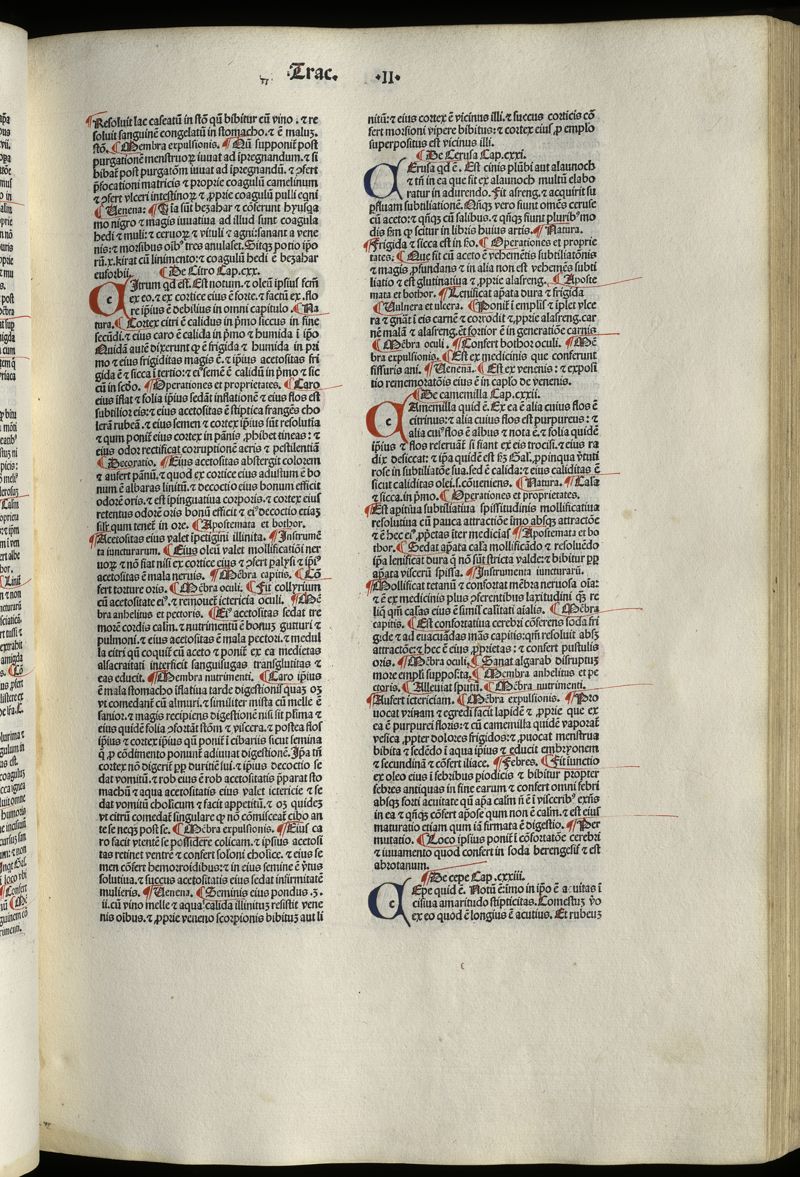 Trac. ·II·
Resoluit lac caseatū in stō qn̄ bibitur cū vino. ⁊ re
soluit sanguinē congelatū in stomacho. ⁊ ē maluꝫ.
stō. ¶ Membra expulsionis. ¶ Qn̄ supponiť post
purgationē menstruoꝝ iuuat ad ipregnandum. ⁊ si
bibať post purgatōm iuuat ad ipregnandū. ⁊ ꝯfert
p̄focationi matricis ⁊ proprie coagulū camelinum
⁊ ꝯfert vlceri intestinoꝝ ⁊ ꝓprie coagulū pulli eqni
¶ Uenena: ¶ Oīa sūt beʒahar ⁊ cōferunt hyusqa
mo nigro ⁊ magis iuuatiua ad illud sunt coagula
hedi ⁊ muli: ⁊ ceruoꝝ ⁊ vituli ⁊ agni: sanant a vene
nis: ⁊ morsibus oībꝰ tres anulaset. Sitqꝫ potio ip̄o
rū. x. kirat cū linimento: ⁊ coagulū hedi ē beʒahar
euforbii. ¶ De Citro Cap. cxx.
CItrum qd ē st. Est notum. ⁊ oleū ipsius fcm̄
ex eo. ⁊ ex cortice eius ē forte. ⁊ factū ex. flo
re ip̄ius ē debilius in omni capitulo. ¶ Na
tura. ¶ Cortex citri ē calidus in p̄mo siccus in fine
secūdi. ⁊ eius caro ē calida in p̄mo ⁊ humida ī ip̄o
Quidā autē dixerunt ꝙ ē frigida ⁊ humida in pri
mo ⁊ eius frigiditas magis ē. ⁊ ip̄ius acetositas fri
gida ē ⁊ sicca ī tertio: ⁊ eiꝰ semē ē calidū in p̄mo ⁊ sic
cū in scd̄o. ¶ Operationes ⁊ proprietates. ¶ Caro
eius iflat ⁊ folia ip̄ius sedāt inflationē ⁊ eius flos est
subtilior eis: ⁊ eius acetositas ē stiptica frangēs cho
lerā rubeā. ⁊ eius semen ⁊ cortex ip̄ius sūt resolutiua
⁊ qum poniť eius cortex in pānis ꝓhibet tineas: ⁊
eius odor rectificat corruptionē aeris ⁊ pestilentiā
¶ Decoratio. ¶ Eius acetositas abstergit colorem
⁊ aufert pānū. ⁊ quod ex cortice eius adustum ē bo
num ē albaras linitū. ⁊ decoctio eius bonum efficit
odorē oris. ⁊ est ipinguatiua corporis. ⁊ cortex eius
retentus odorē oris bonū efficit ⁊ eiꝰ decoctio etiaꝫ
siłr qum teneť in ore. ¶ Apostemata et bothor.
¶ Acetositas eius valet ipetigini illinita. ¶ Instrumē
ta iuncturarum. ¶ Eius oleū valet mollificatiōi ner
uoꝝ ⁊ nō fiat nisi ex cortice eius ⁊ ꝯfert palysi ⁊ ip̄iꝰ
acetositas ē mala neruis. ¶ Mēbra capitis. ¶ Cō
fert torture oris. ¶ Mēbra oculi. ¶ Fit collyrium
cū acetositate eiꝰ. ⁊ remouet ictericia oculi. ¶ Mē
bra anhelitus et pectoris. ¶ Eiꝰ acetositas sedat tre
morē cordis calm̄. ⁊ nutrimentū ē bonuꝫ gutturi ⁊
pulmoni. ⁊ eius acetositas ē mala pectori. ⁊ medul
la citri qn̄ coquiť cū aceto ⁊ poniť ex ea medietas
alsacraitati interficit sanguisugas transglutitas ⁊
eas educit. ¶ Membra nutrimenti. ¶ Caro ip̄ius
ē mala stomacho iflatiua tarde digestionis quaꝫ oꝫ
vt comedant cū almuri. ⁊ similiter mista cū melle ē
sanior. ⁊ magis recipiens digestionē nisi sit p̄lma ⁊
eius quidē folia ꝯfortāt stōm ⁊ viscera. ⁊ postea flos
ip̄ius ⁊ cortex ip̄ius qn̄ poniť ī cibariis sicut semina
ꝗ ꝓ cōdimento ponunt adiuuat digestionē. Ip̄a tn̄
cortex nō digerit ꝓp̄ duritiē sui. ⁊ ip̄ius decoctio se
dat vomitū. ⁊ rob eius ē rob acetositatis p̄parat sto
machū ⁊ aqua acetositatis eius valet ictericie ⁊ se
dat vomitū cholicum ⁊ facit appetitū. ⁊ oꝫ quideꝫ
vt citrū comedať singulare ꝙ nō cōmisceať cibo an
te se neqꝫ post se. ¶ Mēbra expulsionis. ¶ Eius ca
ro facit vtentē se possidere colicam. ⁊ ip̄sius acetosi
tas retinet ventrē ⁊ confert soloni cholice. ⁊ eius se
men cōfert hemorroidibus: ⁊ in eius semine ē v̄tus
solutiua. ⁊ succus acetositatis eius sedat infirmitatē
mulieris. ¶ Uenena. ¶ Seminis eius pondus. ʒ.
ii. cū vino melle ⁊ aqua calida illinitus resistit vene
nis oībus. ⁊ ꝓprie veneno scorpionis bibitus aut li
nitū: ⁊ eius cortex ē vicinus illi. ⁊ succus corticis cō
fert morsioni vipere bibitus: ⁊ cortex eius ꝓ emplo
superpositus est vicinus illi.
¶ De Cerusa Cap. cxxi.
CErusa qd ē. Est cinis plūbi aut alaunoch
⁊ tn̄ in ea que fit ex alaunoch multū elabo
ratur in adurendo. Fit asreng. ⁊ acquirit su
p̄fluam subtiliationē. Qn̄qꝫ vero fiunt omēs ceruse
cū aceto: ⁊ qn̄qꝫ cū salibus. ⁊ qn̄qꝫ fiunt pluribꝰ mo
dis sm̄ ꝙ scitur in libris huius artis. ¶ Natura.
¶ Frigida ⁊ sicca est in scd̄o. ¶ Operationes et proprie
tates. ¶ Que fit cū aceto ē vehemētis subtiliatōnis
⁊ magis ꝓfundans ⁊ in alia non est vehemēs subti
liatio ⁊ est glutinatiua ⁊ ꝓprie alasreng. ¶ Aposte
mata et bothor. ¶ Lenificat ap̄ata dura ⁊ frigida
¶ Uulnera et ulcera. ¶ Poniť ī emplīs ⁊ īplet vlce
ra ⁊ gnāt ī eis carnē ⁊ corrodit ⁊ ꝓprie alasreng. car
nē malā ⁊ alasreng. est fortior ē in generatiōe carnis.
¶ Mēbra oculi. ¶ Confert bothor oculi. ¶ Mē
bra expulsionis. ¶ Est ex medicinis que conferunt
fissuris ani. ¶ Uenena. ¶ Est ex venenis: ⁊ expositi
tio rememoratōis eius ē in caplo de venenis.
¶ De camemilla Cap. cxxii.
CAmemilla quid ē. Ex ea ē alia cuius flos ē
citrinus: ⁊ alia cuius flos est purpureus: ⁊
alia cuiꝰ flos ē albus ⁊ nota ē. ⁊ folia quidē
ip̄ius ⁊ flos reseruāť si fiant ex eis trocisci. ⁊ eius ra
dix desiccať: ⁊ ip̄a quidē est sm̄ Gal. ꝓpinqua v̄tuti
rose in subtiliatōe sua. sed ē calida: ⁊ eius caliditas ē
sicut caliditas olei. s. cōueniens. ¶ Natura. ¶ Calida
⁊ sicca. in p̄mo. ¶ Operationes et proprietates.
¶ Est apitiua subtiliatiua spissitudinis mollificatiua
resolutiua cū pauca attractiōe imo absqꝫ attractōe
⁊ ē hec eiꝰ ꝓp̄etas īter medicīas ¶ Apostemata et bo
thor. ¶ Sedat ap̄ata calida mollificādo ⁊ resoluēdo
ip̄a lenificat dura ꝗ nō sūt stricta valde: ⁊ bibitur ꝓp̄
ap̄ata viscerū spissa. ¶ Instrumenta iuncturarū.
¶ Mollificat tetanū ⁊ confortat mēbra neruosa oīa:
⁊ ē ex medicinis plus ꝯferentibus laxitudini qꝫ re
liq̄ qm̄ calitas eius ē simīl calitati aīalis. ¶ Mēbra
capitis. ¶ Est confortatiua cerebri cōferens soda fri
gide ⁊ ad euacuādas mās capitis: qm̄ resoluit absqꝫ
attractōe: ⁊ hec ē eius ꝓprietas: ⁊ confert pustulis
oris. ¶ Mēbra oculi. ¶ Sanat algarab disruptuꝫ
more empli supposita. ¶ Membra anhelitus et pe
ctoris. ¶ Alleuiat sputū. ¶ Mēbra nutrimenti.
¶ Aufert ictericiam. ¶ Mēbra expulsionis. ¶ Pro
uocat vrinam ⁊ egredi facit lapidē ⁊ ꝓprie que ex
ea ē purpurei floris: ⁊ cū camemilla quidē vaporať
vesica ꝓpter dolores frigidos: ⁊ ꝓuocat menstrua
bibita ⁊ sedēdo ī aqua ip̄ius ⁊ educit embryonem
⁊ secundinā ⁊ cōfert iliace. ¶ Febres. ¶ Fit iunctio
ex oleo eius ī febribus p̄iodicis ⁊ bibitur propter
febres antiquas in fine earum ⁊ confert omni febri
absqꝫ forti acuitate qn̄ apa calm̄ ī nē ī visceribꝰ exn̄s
in ea ⁊ qn̄qꝫ cōfert ap̄ose qum non ē calm̄. ⁊ est eius
maturatio etiam qum iā firmata ē digestio. ¶ Per
mutatio. ¶ Loco ip̄sius poniť ī cōfortatōe cerebri
⁊ iuuamento quod confert in soda berengesif ⁊ est
abrotanum.
¶ De cepe Cap. cxxiii.
CEpe quid ē. Notū ē. imo in ip̄o ē acuitas ī
cisiua amaritudo stipticitas. Comestuꝫ v̄o
ex eo quod ē longius ē acutius. Et rubeuꝫ